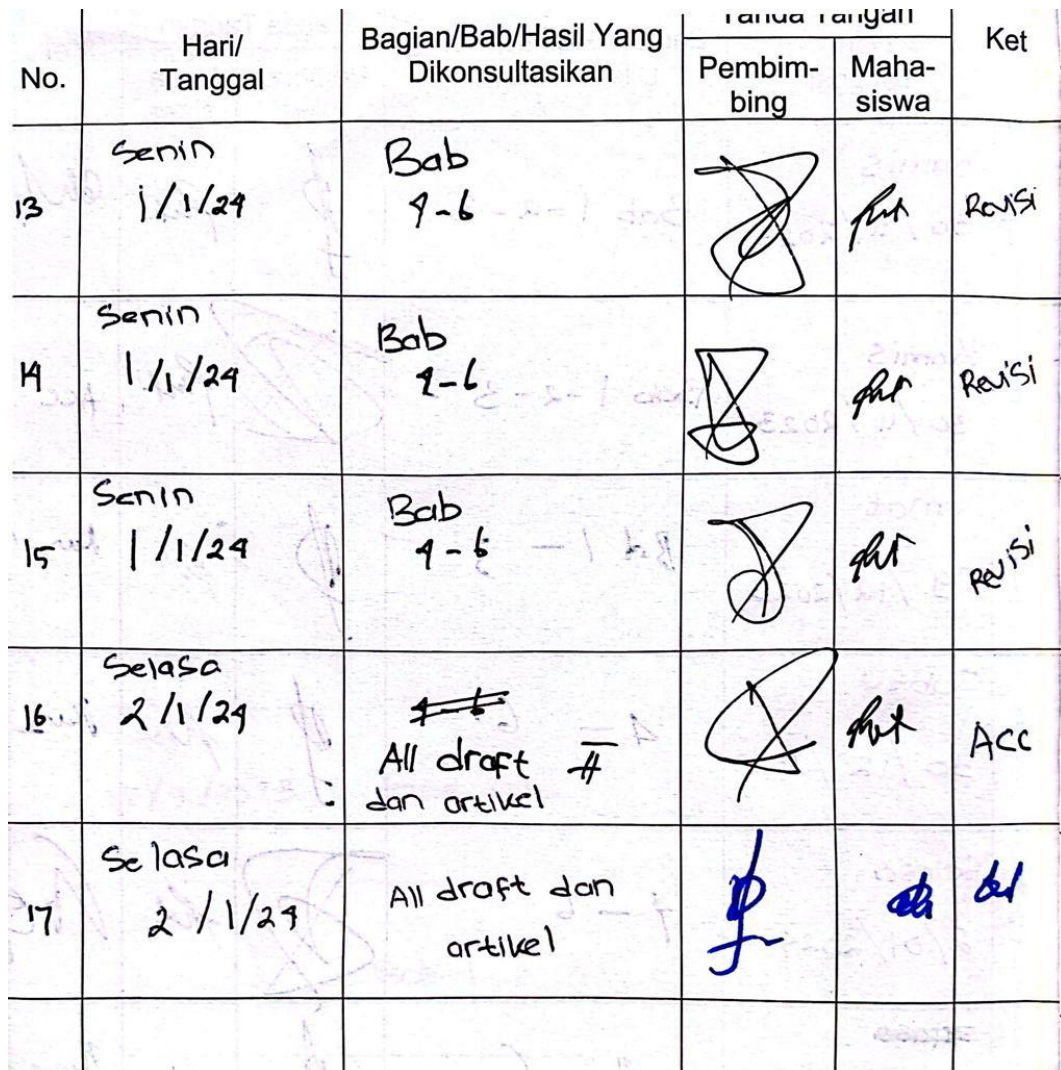 Tanda Tangan
No.
Hari/
Tanggal
Bagian/Bab/Hasil Yang
Dikonsultasikan
Pembim-
bing
Maha-
siswa
Ket
13
Senin
1/1/24
Bab
4-6
Revisi
14
Senin
1/1/24
Bab
4-6
Revisi
15
Senin
1/1/24
Bab
4-6
Revisi
16
Selasa
2/1/24
All draft
dan artikel
ACC
17
Selasa
2/1/24
All draft dan
artikel